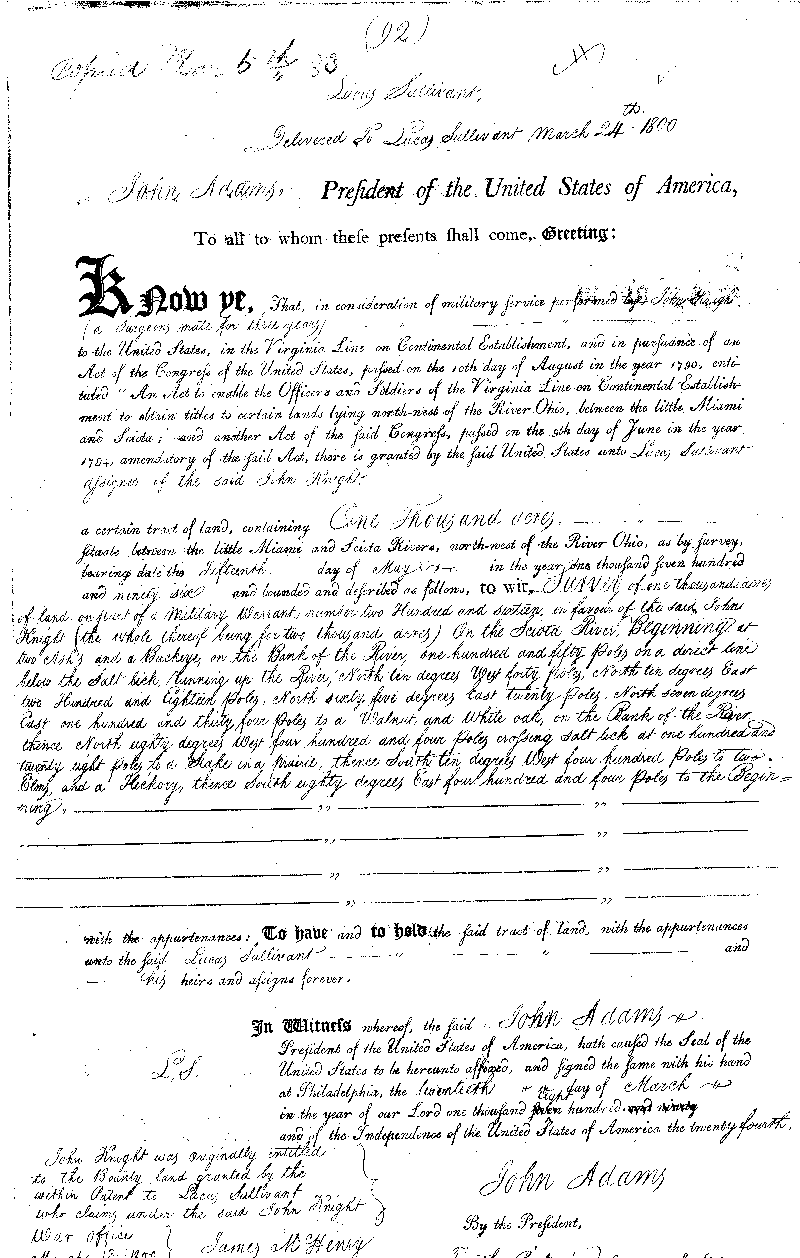 (92)
Copied Nov 5th 33
Lucas Sullivant,
Delivered To Lucas Sullivant March 24th 1800
John Adams, Preſident of the United States of America,
To all to whom theſe preſents ſhall come, Greeting:
Know ye, That, in conſideration of military ſervice performed by John Knight
(a Surgeons mate for three years)
to the United States, in the Virginia Line on Continental Eſtabliſhment, and in purſuance of an
Act of the Congreſs of the United States, paſſed on the 10th day of Auguſt in the year 1790, enti-
tuled "An Act to enable the Officers and Soldiers of the Virginia Line on Continental Eſtabliſh-
ment to obtain titles to certain lands lying north-weſt of the River Ohio, between the little Miami
and Sciota; and another Act of the ſaid Congreſs, paſſed on the 9th day of June in the year
1794, amendatory of the ſaid Act, there is granted by the ſaid United States unto Lucas Sullivant
aſsignee of the said John Knight
a certain tract of land, containing One Thousand acres
ſituate between the little Miami and Sciota Rivers, north-weſt of the River Ohio, as by ſurvey,
bearing date the fifteenth day of May in the year one thouſand ſeven hundred
and ninety six and bounded and deſcribed as follows, to wit, Survey of one thousand acres
of land on part of a Military Warrant, number two Hundred and sixteen, in favour of the said John
Knight (the whole thereof being for two thousand acres) On the Sciota River, Beginning at
two Ash's and a Buckeye, on the Bank of the River, one hundred and fifty Poles on a direct line
below the Salt lick, running up the River, North ten degrees West forty poles, North ten degrees East
two Hundred and Eighteen Poles, North sixty five degrees East twenty Poles, North seven degrees
East one hundred and thirty four Poles to a Walnut, and White oak, on the Bank of the River
thence North eighty degrees West four hundred and four Poles crossing Salt lick at one hundred and
twenty eight poles to a Stake in a Prairie, thence South ten degrees West four hundred Poles to two
Elms, and a Hickory, thence South eighty degrees East four hundred and four Poles to the Begin=
ning.
with the appurtenances: To have and to hold the ſaid tract of land, with the appurtenances
unto the ſaid Lucas Sullivant and
his heirs and aſſigns forever.
In Witneſs whereof, the ſaid John Adams
Preſident of the United States of America, hath cauſed the Seal of the
L.S.
United States to be hereunto affixed, and ſigned the ſame with his hand
at Philadelphia, the twentieth day of March
in the year of our Lord one thouſand ſeven eight hundred and ninety
and of the Independence of the United States of America the twenty fourth.
John Knight was originally entitled
to the Bounty land granted by the
within Patent to Lucas Sullivant
who claims under the said John Knight
War office
James McHenry
John Adams
By the Preſident,